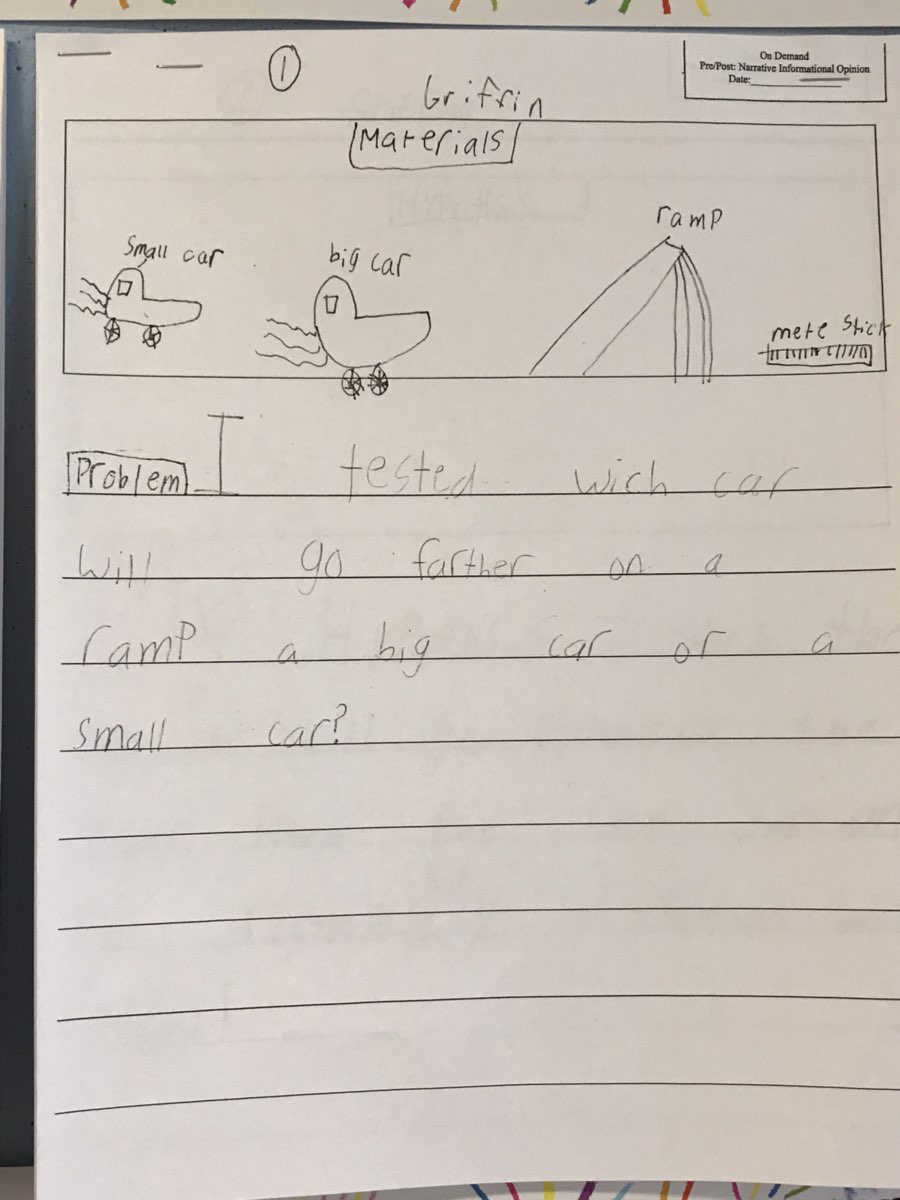 ①
On Demand
Pre/Post: Narrative Informational Opinion
Date:
Griffin
Materials
small car
big car
ramp
mete stick
Problem I tested wich car
will go farther on a
ramp a big car or a
small car?